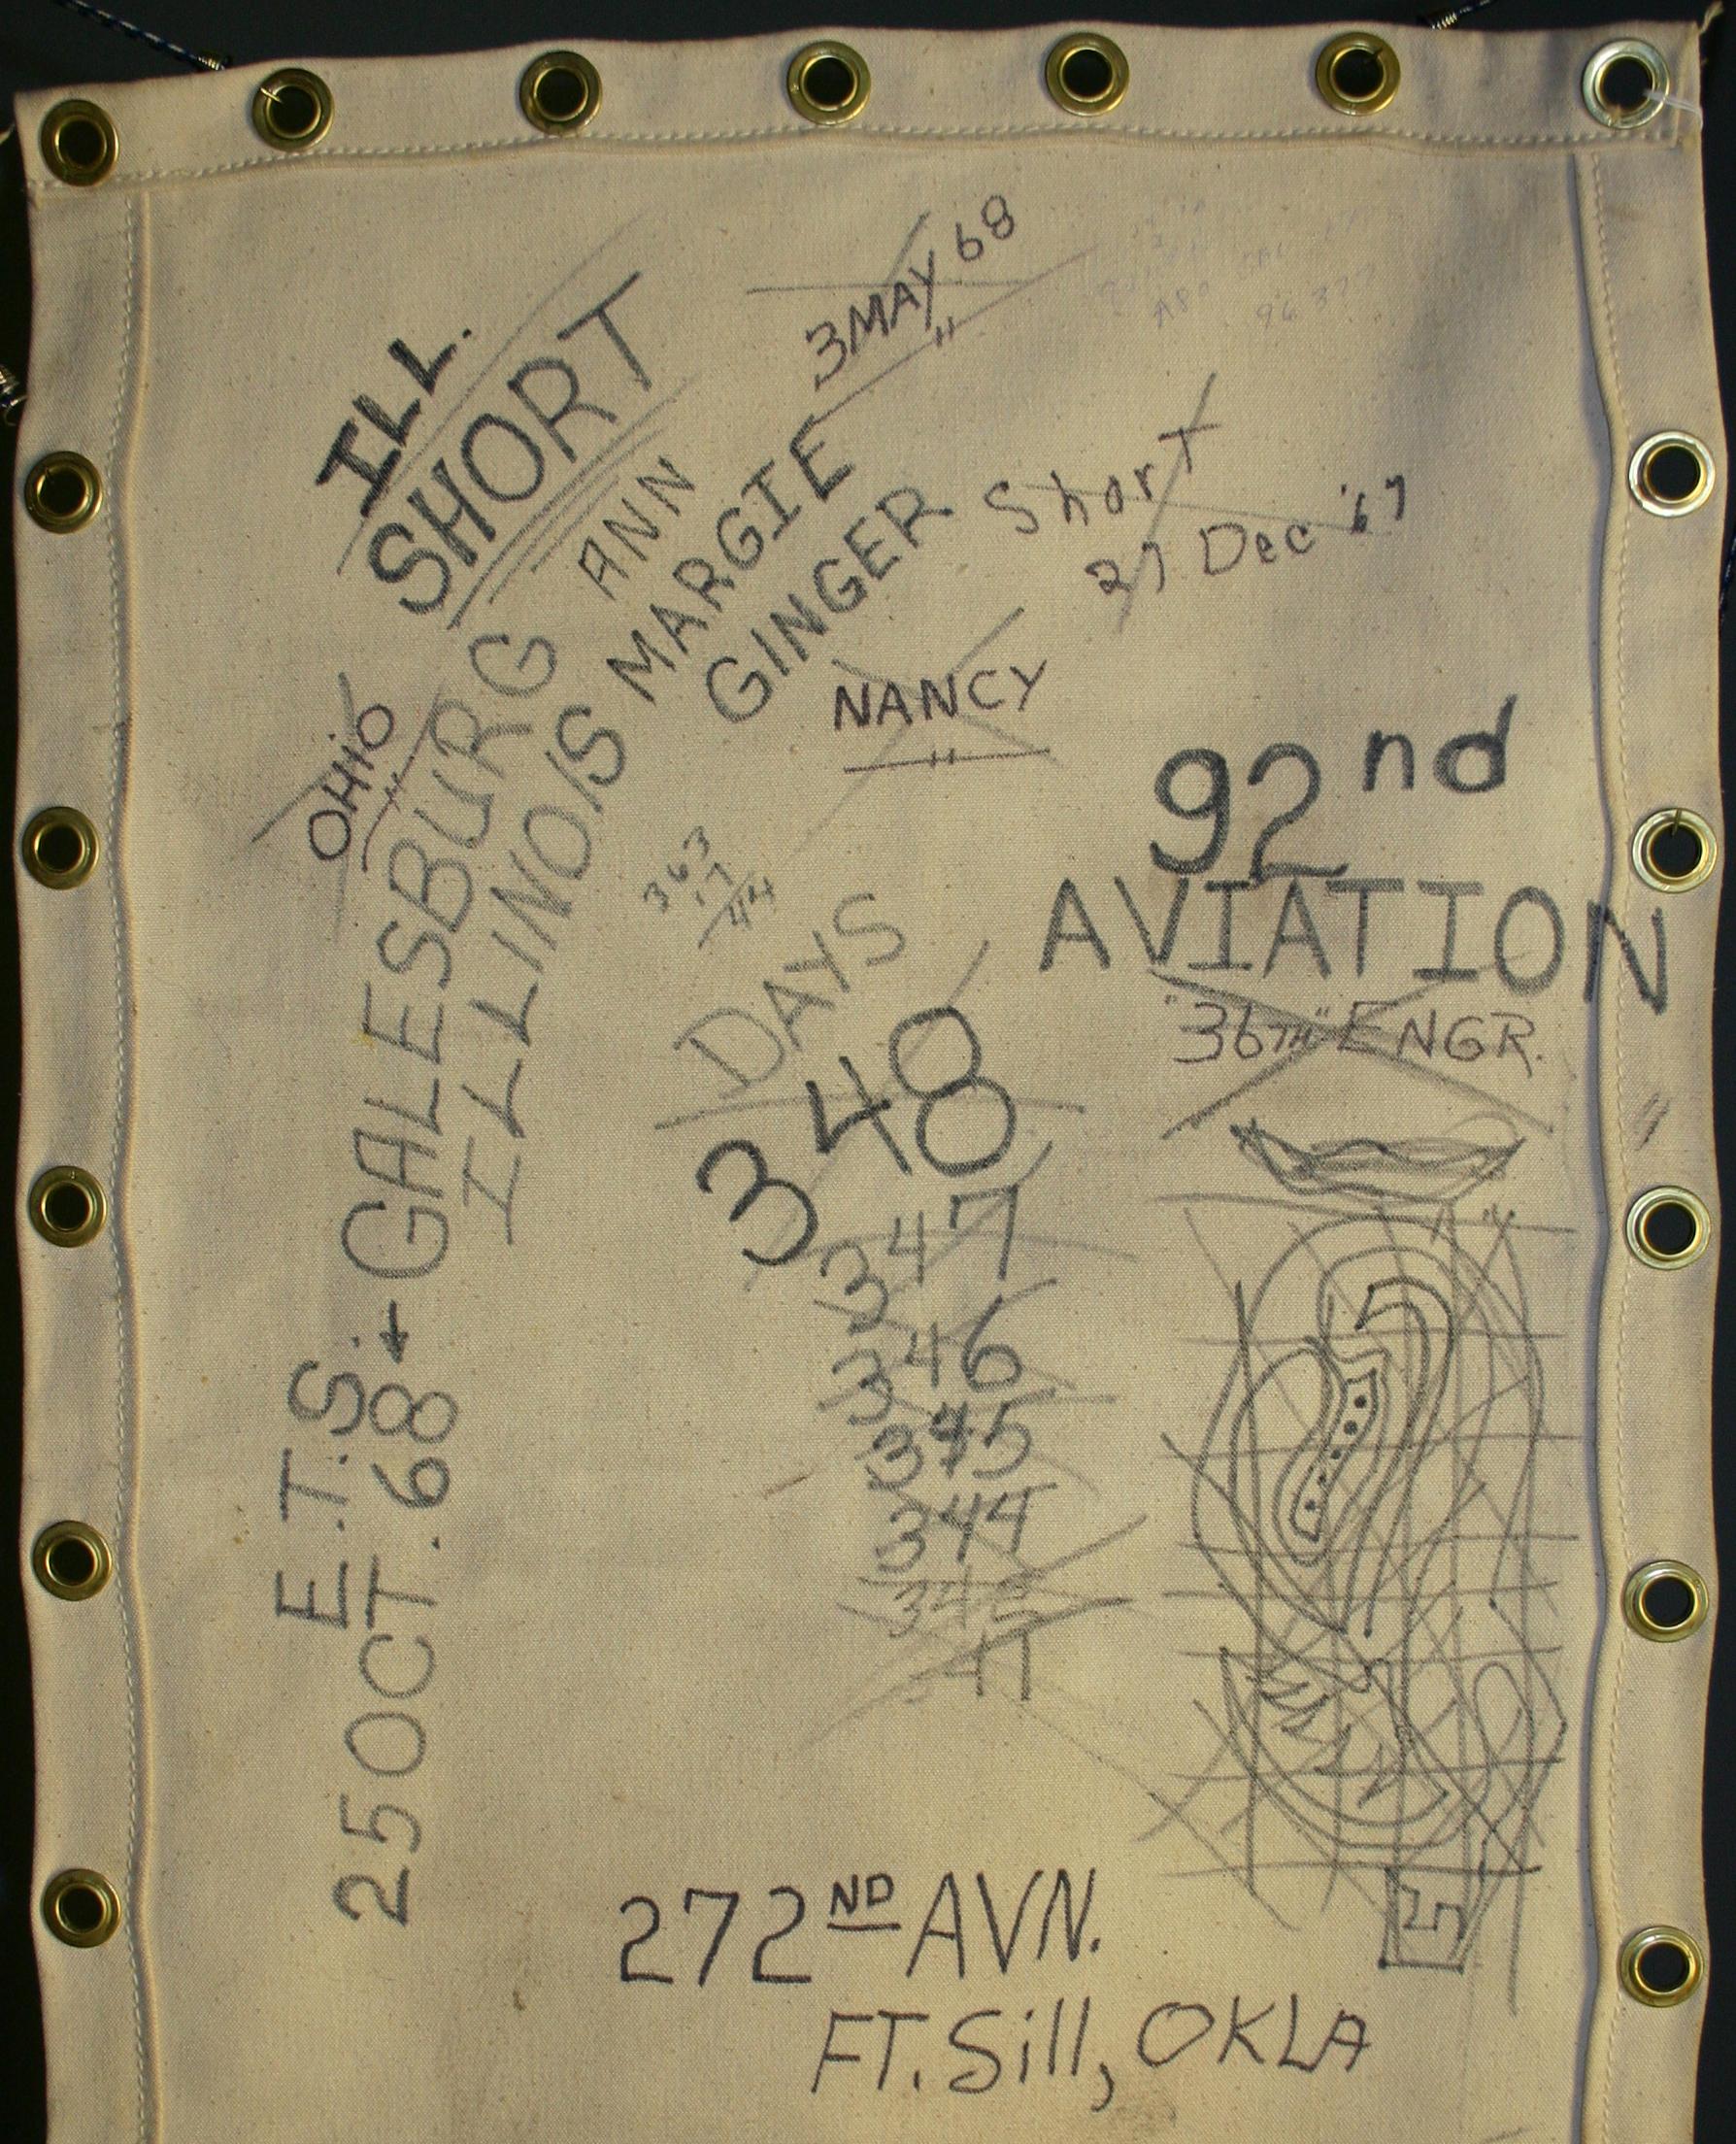 ILL.
SHORT
3 MAY 68
ANN
MARGIE
GINGER
Short
27 Dec '67
NANCY
OHIO
GALESBURG
ILLINOIS
E.T.S.
25 OCT. 68
363
17
DAYS
348
347
346
345
344
92nd
AVIATION
"36TH" ENGR.
272ND AVN.
FT. Sill, OKLA